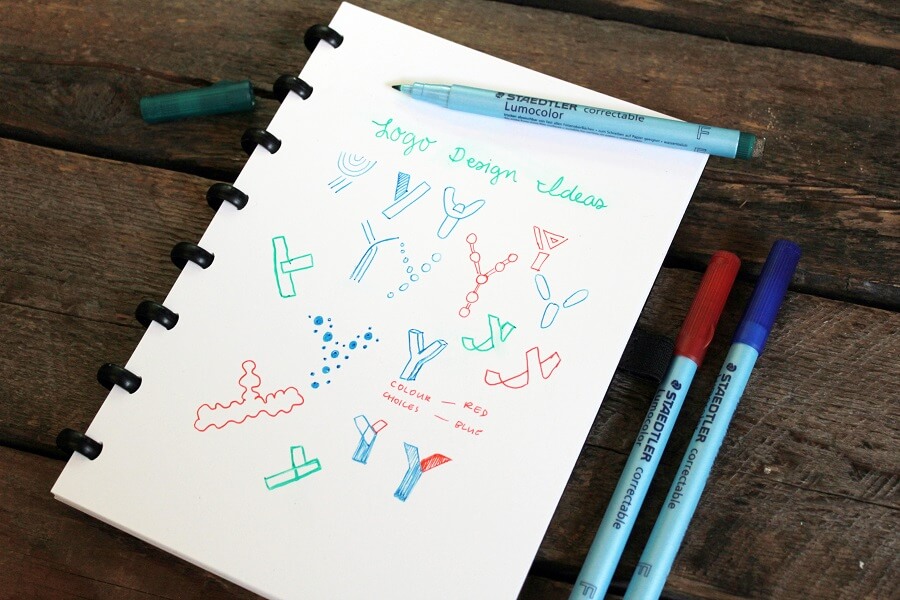 STAEDTLER correctable
Lumocolor
F
Logo Design Ideas
COLOUR — RED
CHOICES — BLUE
STAEDTLER
Lumocolor correctable
F
STAEDTLER
Lumocolor correctable
F